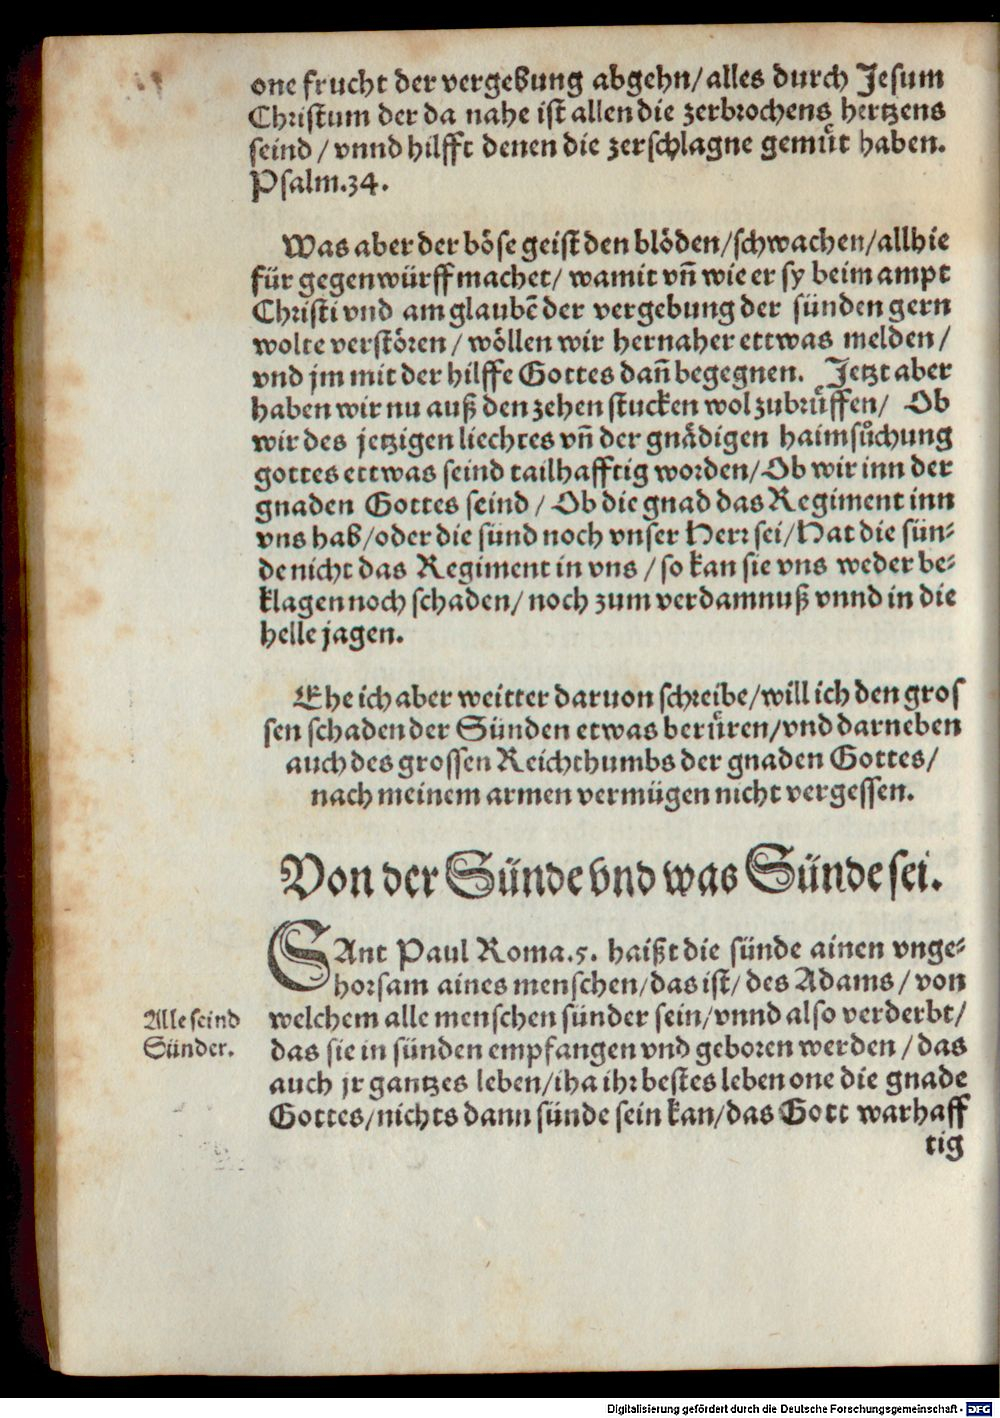 one frucht der vergebung abgehn/alles durch Jesum
Christum der da nahe ist allen die zerbrochens hertzens
seind/vnnd hilfft denen die zerschlagne gemuͤt haben.
Psalm.34.
Was aber der böse geist den blöden/schwachen/allhie
für gegenwürff machet/wamit vn̄ wie er sy beim ampt
Christi vnd am glaubē der vergebung der sünden gern
wolte verstören/wöllen wir hernaher ettwas melden/
vnd jm mit der hilffe Gottes dan̄ begegnen. Jetzt aber
haben wir nu auß den zehen stucken wol zubruͤffen/ Ob
wir des jetzigen liechtes vn̄ der gnädigen haimsůchung
gottes ettwas seind tailhafftig worden/Ob wir inn der
gnaden Gottes seind/Ob die gnad das Regiment inn
vns hab/oder die sünd noch vnser Herr sei/Hat die sün-
de nicht das Regiment in vns/so kan sie vns weder be-
klagen noch schaden/noch zum verdamnuß vnnd in die
helle jagen.
Ehe ich aber weitter daruon schreibe/will ich den gros
sen schaden der Sünden etwas beruͤren/vnd darneben
auch des grossen Reichthumbs der gnaden Gottes/
nach meinem armen vermügen nicht vergessen.
Von der Sünde vnd was Sünde sei.
SAnt Paul Roma.5. haißt die sünde ainen vnge-
horsam aines menschen/das ist/des Adams/von
Alle seind
Sünder.
welchem alle menschen sünder sein/vnnd also verderbt/
das sie in sünden empfangen vnd geboren werden/das
auch jr gantzes leben/iha ihr bestes leben one die gnade
Gottes/nichts dann sünde sein kan/das Gott warhaff
tig
Digitalisierung gefördert durch die Deutsche Forschungsgemeinschaft - DFG